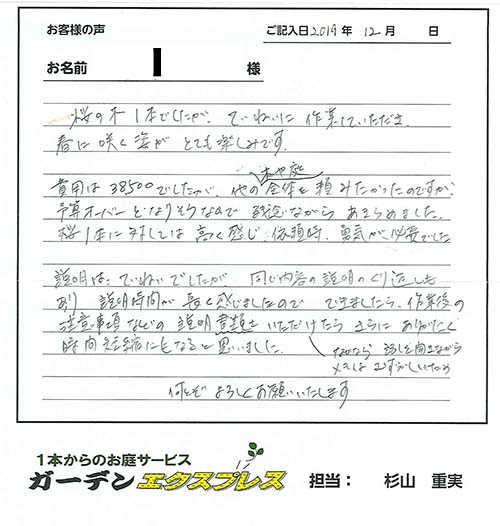 お客様の声
ご記入日2019年 12月 日
お名前 様
桜の木1本でしたが、ていねいに作業していただき
春に咲く姿がとても楽しみです。
木や庭
費用は38500でしたが、他の全体を頼みたかったのですが、
予算オーバーとなりそうなので残念ながらあきらめました。
桜1本に対しては高く感じ、依頼時、勇気が必要でした
説明は、ていねいでしたが 同じ内容の説明のくり返しも
あり 説明時間が長く感じましたので できましたら、作業後の
注意事項などの説明書類をいただけたら さらに ありがたく
時間短縮にもなると思いました。
なぜなら 話しを聞きながら
メモは むずかしいため
何とぞ よろしくお願いいたします
1本からのお庭サービス
ガーデンエクスプレス 担当： 杉山 重実